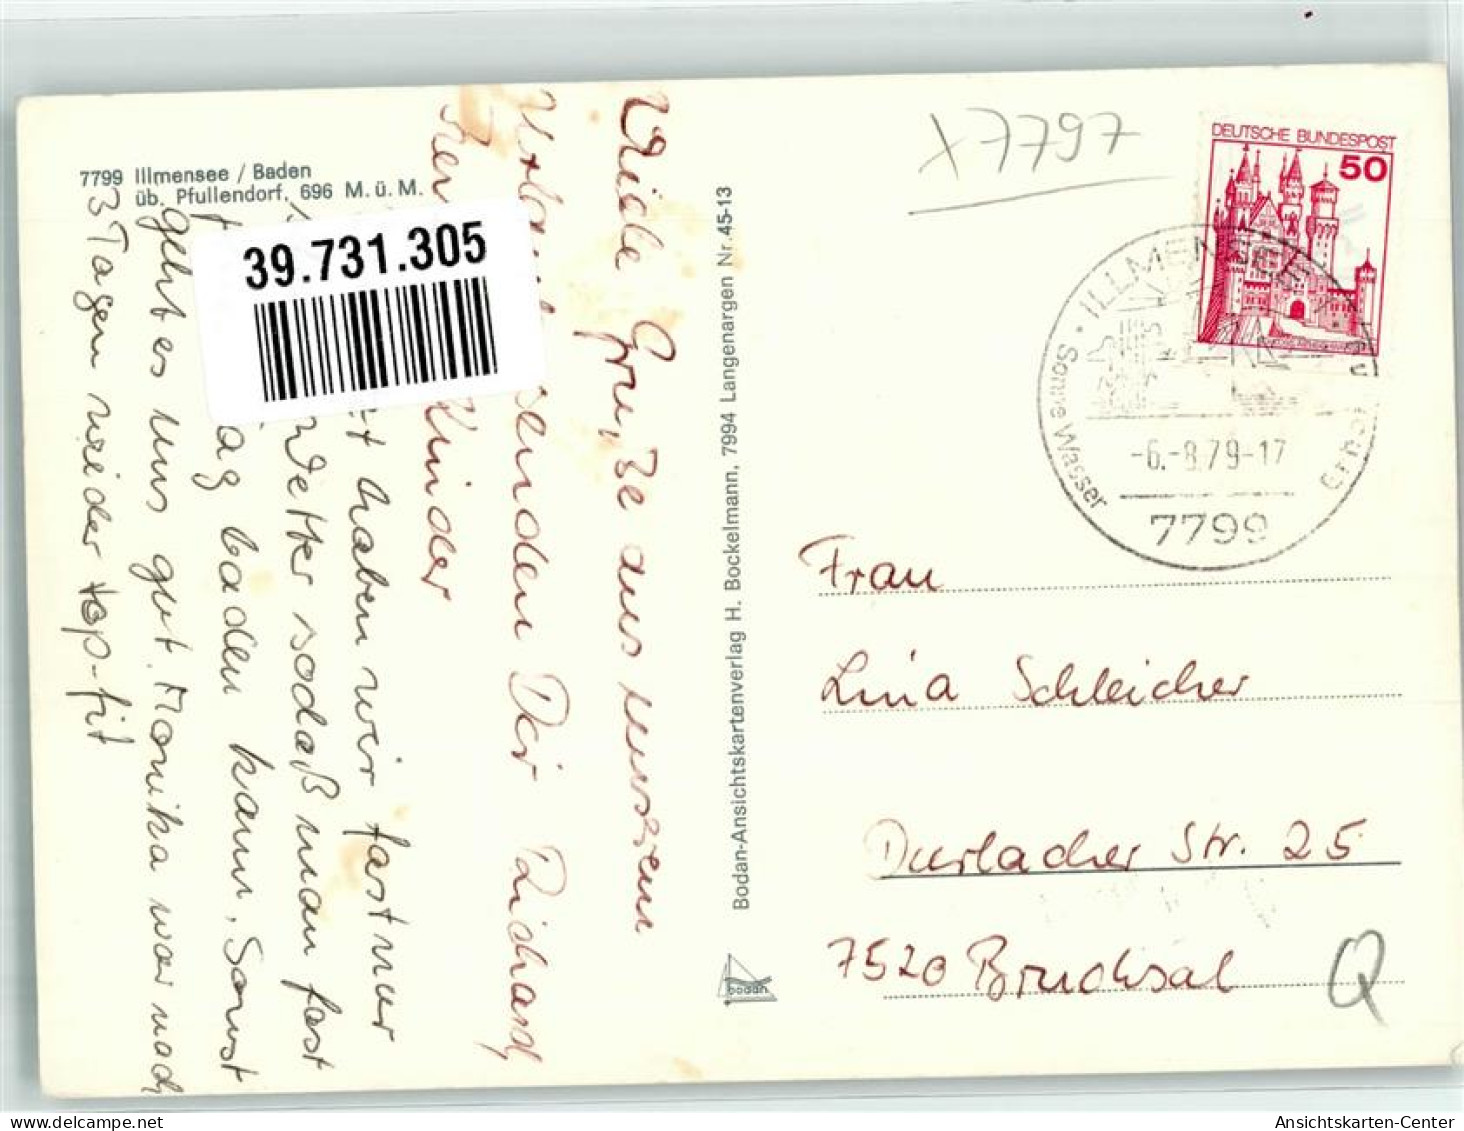 7799 Illmensee / Baden
üb. Pfullendorf, 696 M. ü. M.
39.731.305
Viele Grüße aus unserem
senden Dir Richard,
Kinder
haben wir fast nur
Wetter sodaß man fast
ag baden kann, Sonst
geht es uns gut. Monika war nach
3 Tagen wieder top-fit
Bodan-Ansichtskartenverlag H. Bockelmann, 7994 Langenargen Nr. 45-13
bodan
X7797
DEUTSCHE BUNDESPOST
50
ILLMENSEE
Sonne Wasser
-6.-8.79-17
7799
Frau
Lina Schleicher
Durlacher Str. 25
7520 Bruchsal
Q
Ansichtskarten-Center